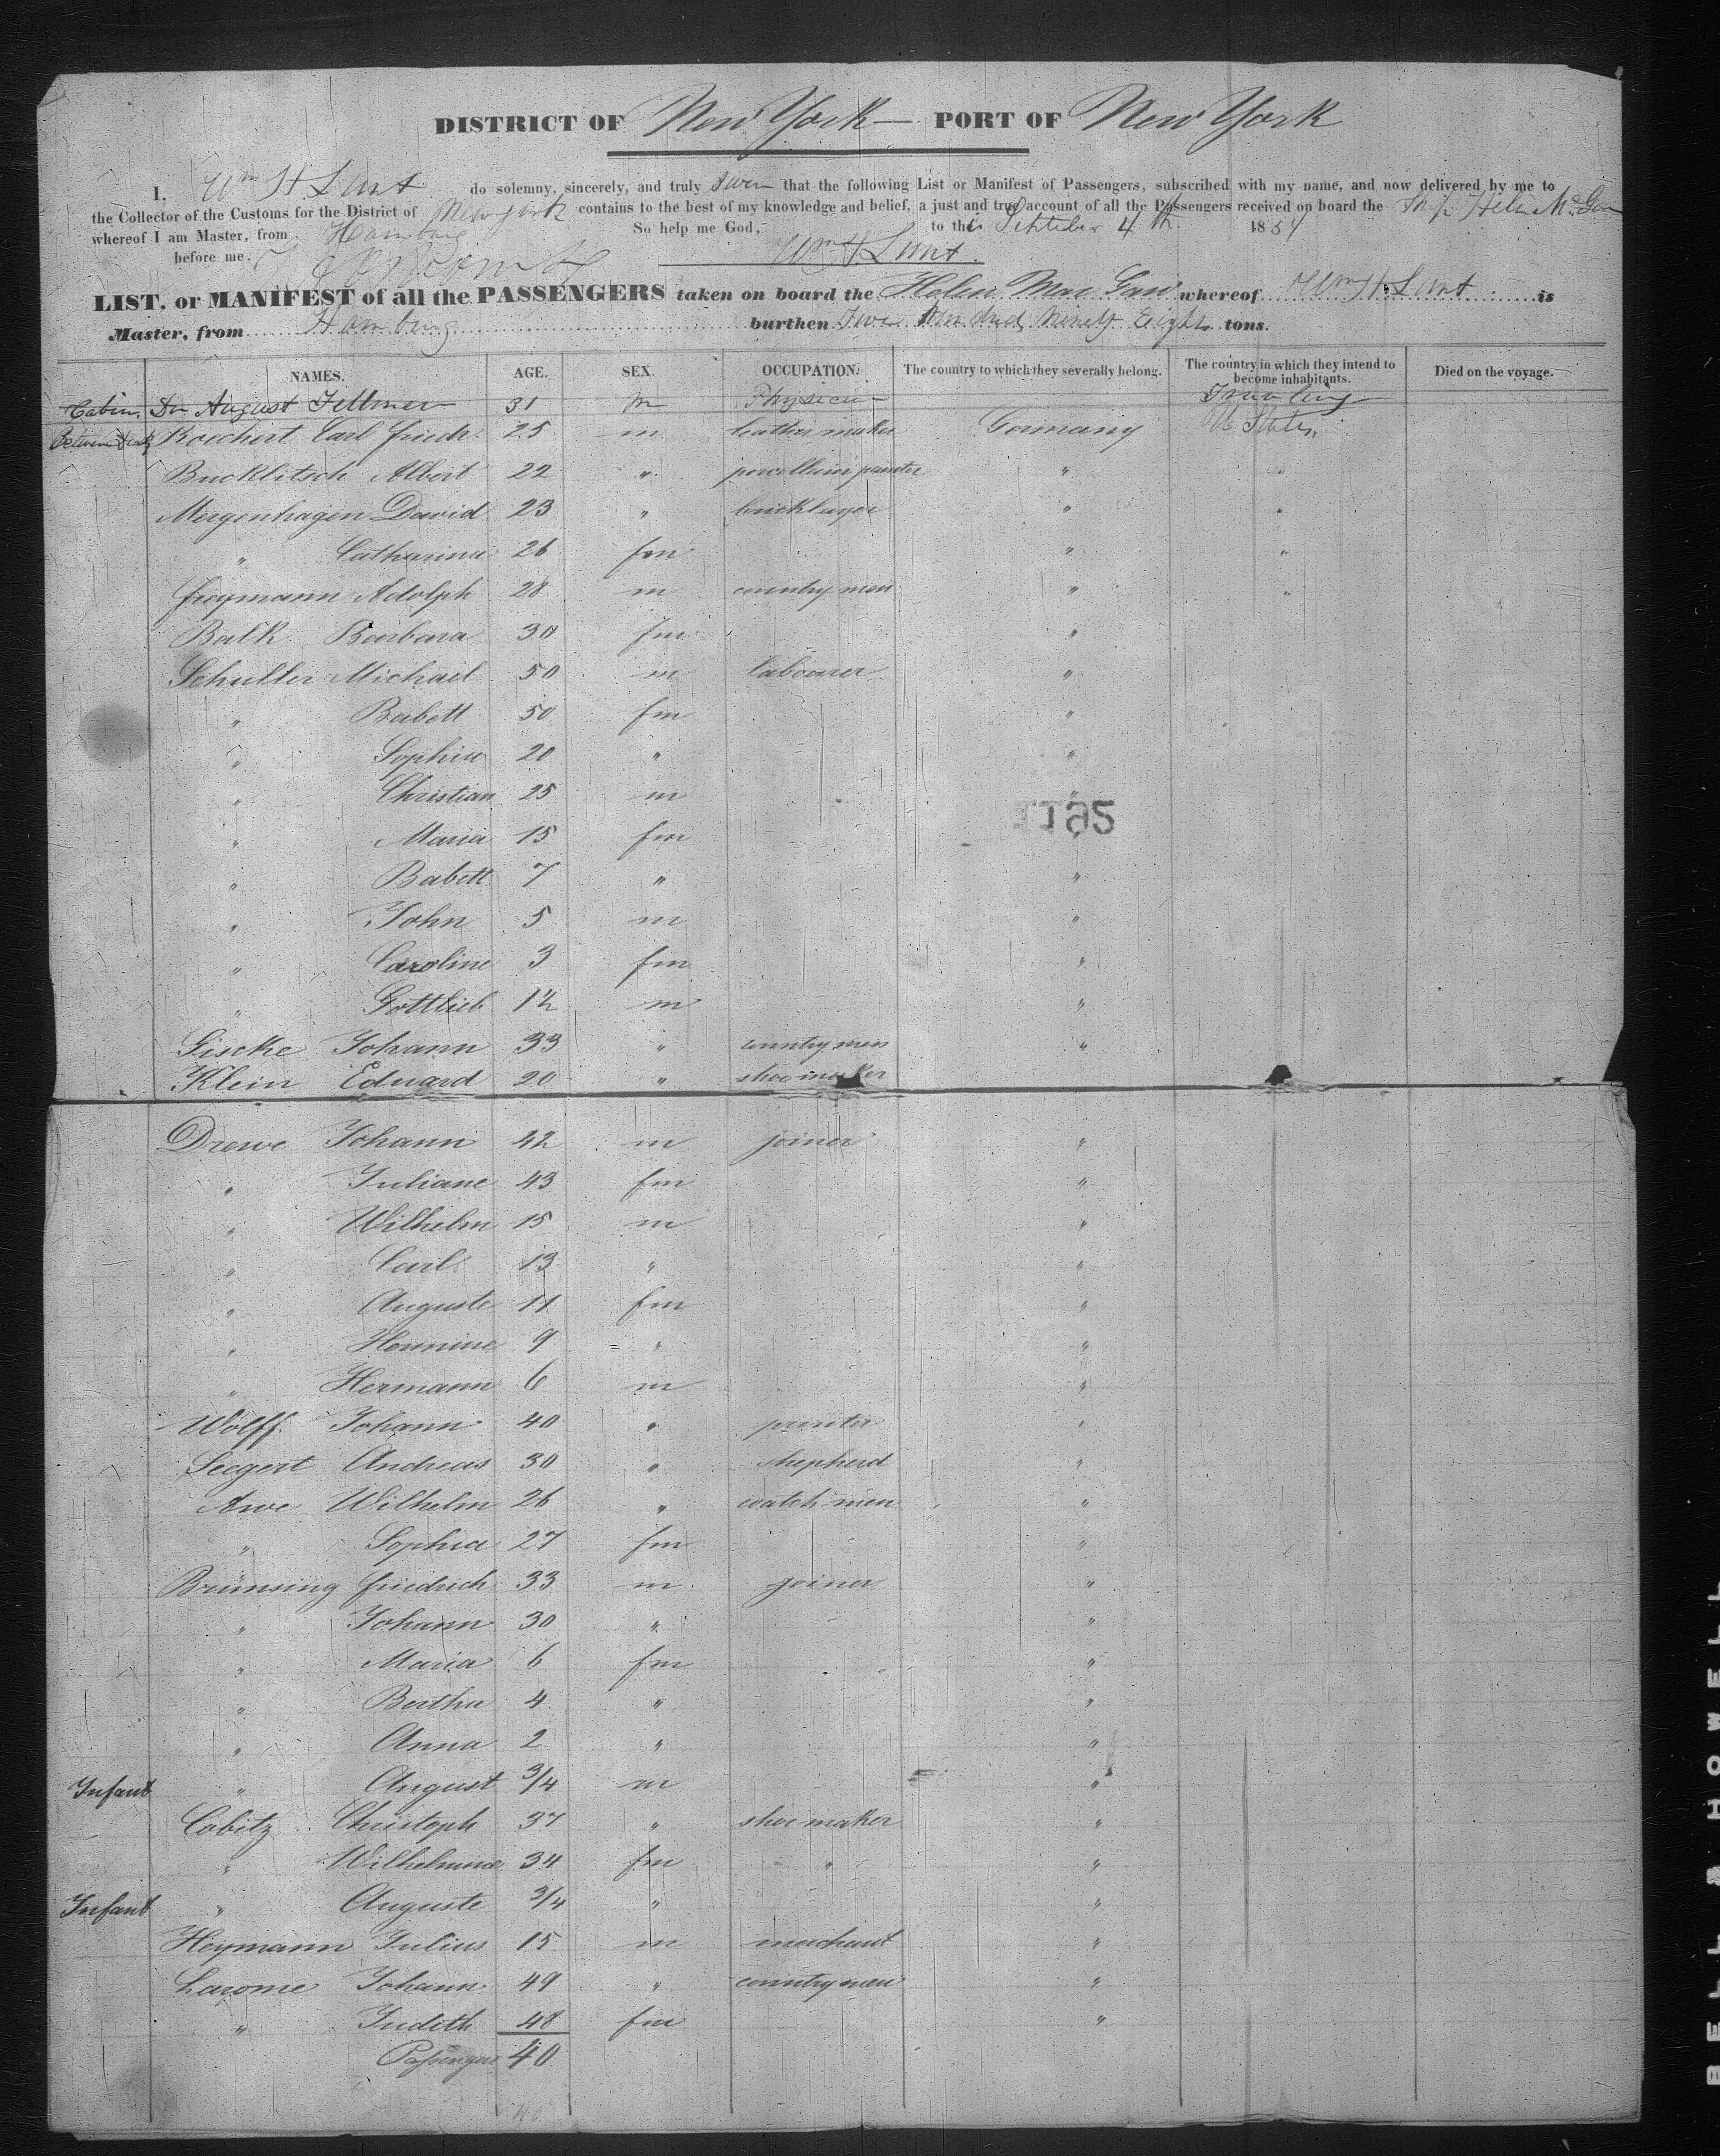 DISTRICT OF New York — PORT OF New York
I, Wm H. Lunt do solemny, sincerely, and truly swear that the following List or Manifest of Passengers, subscribed with my name, and now delivered by me to
the Collector of the Customs for the District of New York contains to the best of my knowledge and belief, a just and true account of all the Passengers received on board the Ship Helen McGaw
whereof I am Master, from Hamburg So help me God, to this September 4th 1854
before me. Wm H. Lunt.
LIST, or MANIFEST of all the PASSENGERS taken on board the Helen Mac Gaw whereof Wm H. Lunt is
Master, from Hamburg burthen Five Hundred Ninety Eight tons.
NAMES. AGE. SEX. OCCUPATION. The country to which they severally belong. The country in which they intend to become inhabitants. Died on the voyage.
Cabin. Dr August Fellmer 31 m Physician Traveling
Between Deck Borchert Carl Friedr. 25 m leather maker Germany U States.
Bucklitsch Albert 22 " porcellain painter " "
Mergenhagen David 23 " bricklayer " "
" Catharina 26 fm " "
Freymann Adolph 28 m country men " "
Balk Barbara 30 fm "
Schuller Michael 50 m labourer "
" Babett 50 fm "
" Sophia 20 " "
" Christian 25 m "
1192
" Maria 15 fm "
" Babett 7 " "
" John 5 m "
" Caroline 3 fm "
" Gottlieb 1½ m "
Giscke Johann 33 " country men "
Klein Eduard 20 " shoe maker
Drewe Johann 42 m joiner "
" Juliane 43 fm "
" Wilhelm 15 m "
" Carl 13 " "
" Auguste 11 fm "
" Hermine 9 " "
" Hermann 6 m "
Wolff Johann 40 " painter "
Seegert Andreas 30 " shepherd "
Awe Wilhelm 26 " watch men "
" Sophia 27 fm "
Brümsing Friedrich 33 m joiner "
" Johann 30 " "
" Maria 6 fm "
" Bertha 4 " "
" Anna 2 " "
Infant " August 3/4 m "
Cabitz Christoph 37 " shoe maker "
" Wilhelmine 34 fm " "
Infant " Auguste 3/4 " "
Heymann Julius 15 m merchant "
Larome Johann 49 " country men "
" Judith 48 fm "
Passengers 40
BELL & HOWELL